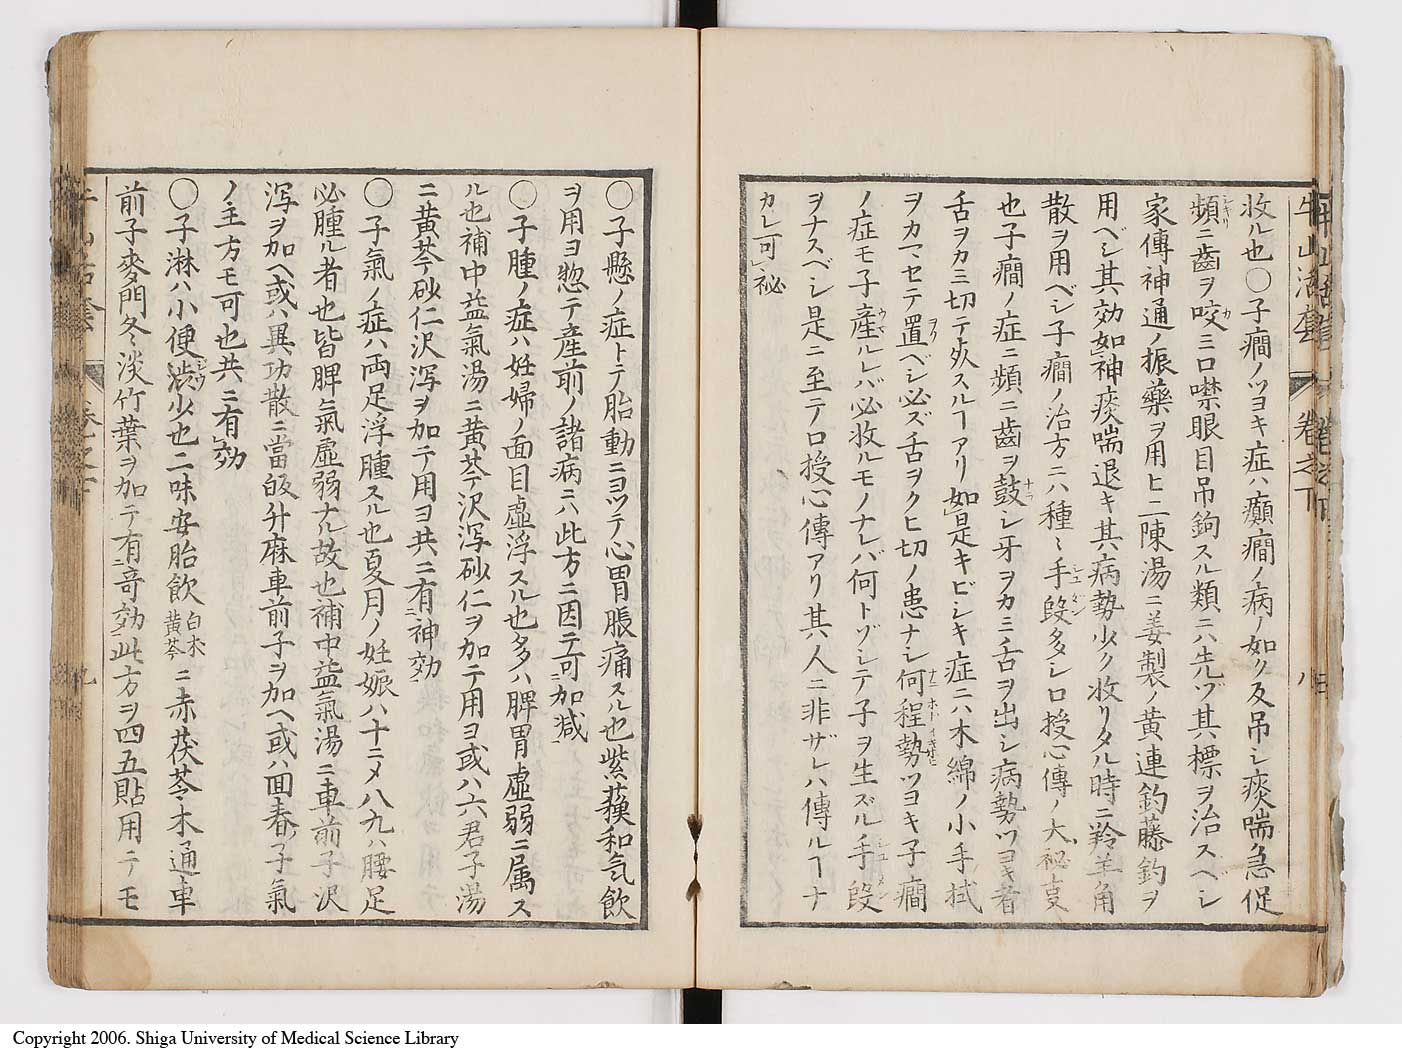 收ル也〇子癇ノツヨキ症ハ癲癇ノ病ノ如ク反吊シ痰喘急促
頻ニ齒ヲ咬ミ口噤眼目吊鉤スル類ニハ先ヅ其標ヲ治スベシ
家傳神通ノ振藥ヲ用ヒ二陳湯ニ姜製ノ黄連釣藤鈎ヲ
用ベシ其効如神痰喘退キ其病勢少ク收リタル時ニ羚羊角
散ヲ用ベシ子癇ノ治方ニハ種〻手段多シ口授心傳ノ大秘叓
也子癇ノ症ニ頻ニ齒ヲ鼓シ牙ヲカミ舌ヲ出シ病勢ツヨキ者
舌ヲカミ切テ死スルーアリ如是キビシキ症ニハ木綿ノ小手拭
ヲカマセテ置ベシ必ズ舌ヲクヒ切ノ患ナシ何程勢ツヨキ子癇
ノ症モ子産ルレバ必收ルモノナレバ何トゾシテ子ヲ生ズル手段
ヲナスベシ是ニ至テ口授心傳アリ其人ニ非ザレハ傳ルーナ
カレ可祕
牛山活套 卷之下 八
〇子懸ノ症トテ胎動ニヨツテ心胃脹痛スル也紫蘓和气飲
ヲ用ヨ惣テ産前ノ諸病ニハ此方ニ因テ可加減
〇子腫ノ症ハ妊婦ノ面目虚浮スル也多ハ脾胃虚弱ニ属ス
ル也補中益氣湯ニ黄芩沢瀉砂仁ヲ加テ用ヨ或ハ六君子湯
ニ黄芩砂仁沢瀉ヲ加テ用ヨ共ニ有神効
〇子氣ノ症ハ両足浮腫スル也夏月ノ妊娠ハ十ニメ八九ハ腰足
必腫ル者也皆脾氣虚弱ナル故也補中益氣湯ニ車前子沢
瀉ヲ加ヘ或ハ異功散ニ當皈升麻車前子ヲ加ヘ或ハ囬春ノ子氣
ノ主方モ可也共ニ有効
〇子淋ハ小便渋少也二味安胎飲白朮黄芩ニ赤茯苓木通車
前子麥門冬淡竹葉ヲ加テ有奇効此方ヲ四五貼用テモ
九
Copyright 2006. Shiga University of Medical Science Library